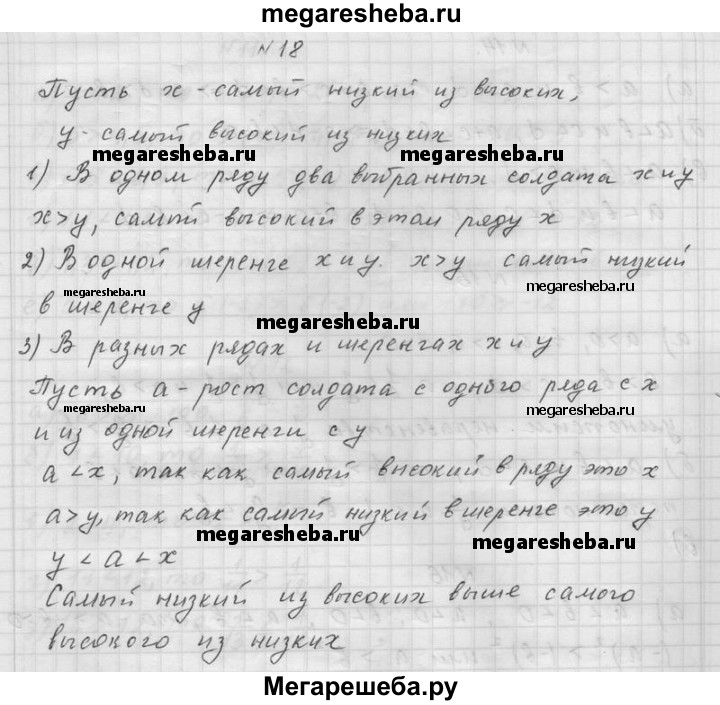 megaresheba.ru
N18
Пусть x - самый низкий из высоких,
y - самый высокий из низких
megaresheba.ru megaresheba.ru
1) В одном ряду два выбранных солдата x и y
x > y, самый высокий в этом ряду x
2) В одной шеренге x и y. x > y самый низкий
megaresheba.ru megaresheba.ru
в шеренге y
megaresheba.ru
3) В разных рядах и шеренгах x и y
Пусть a - рост солдата с одного ряда с x
megaresheba.ru megaresheba.ru
и из одной шеренги с y
a < x, так как самый высокий в ряду это x
a > y, так как самый низкий в шеренге это y
megaresheba.ru megaresheba.ru
y < a < x
Самый низкий из высоких выше самого
высокого из низких
Мегарешеба.ру